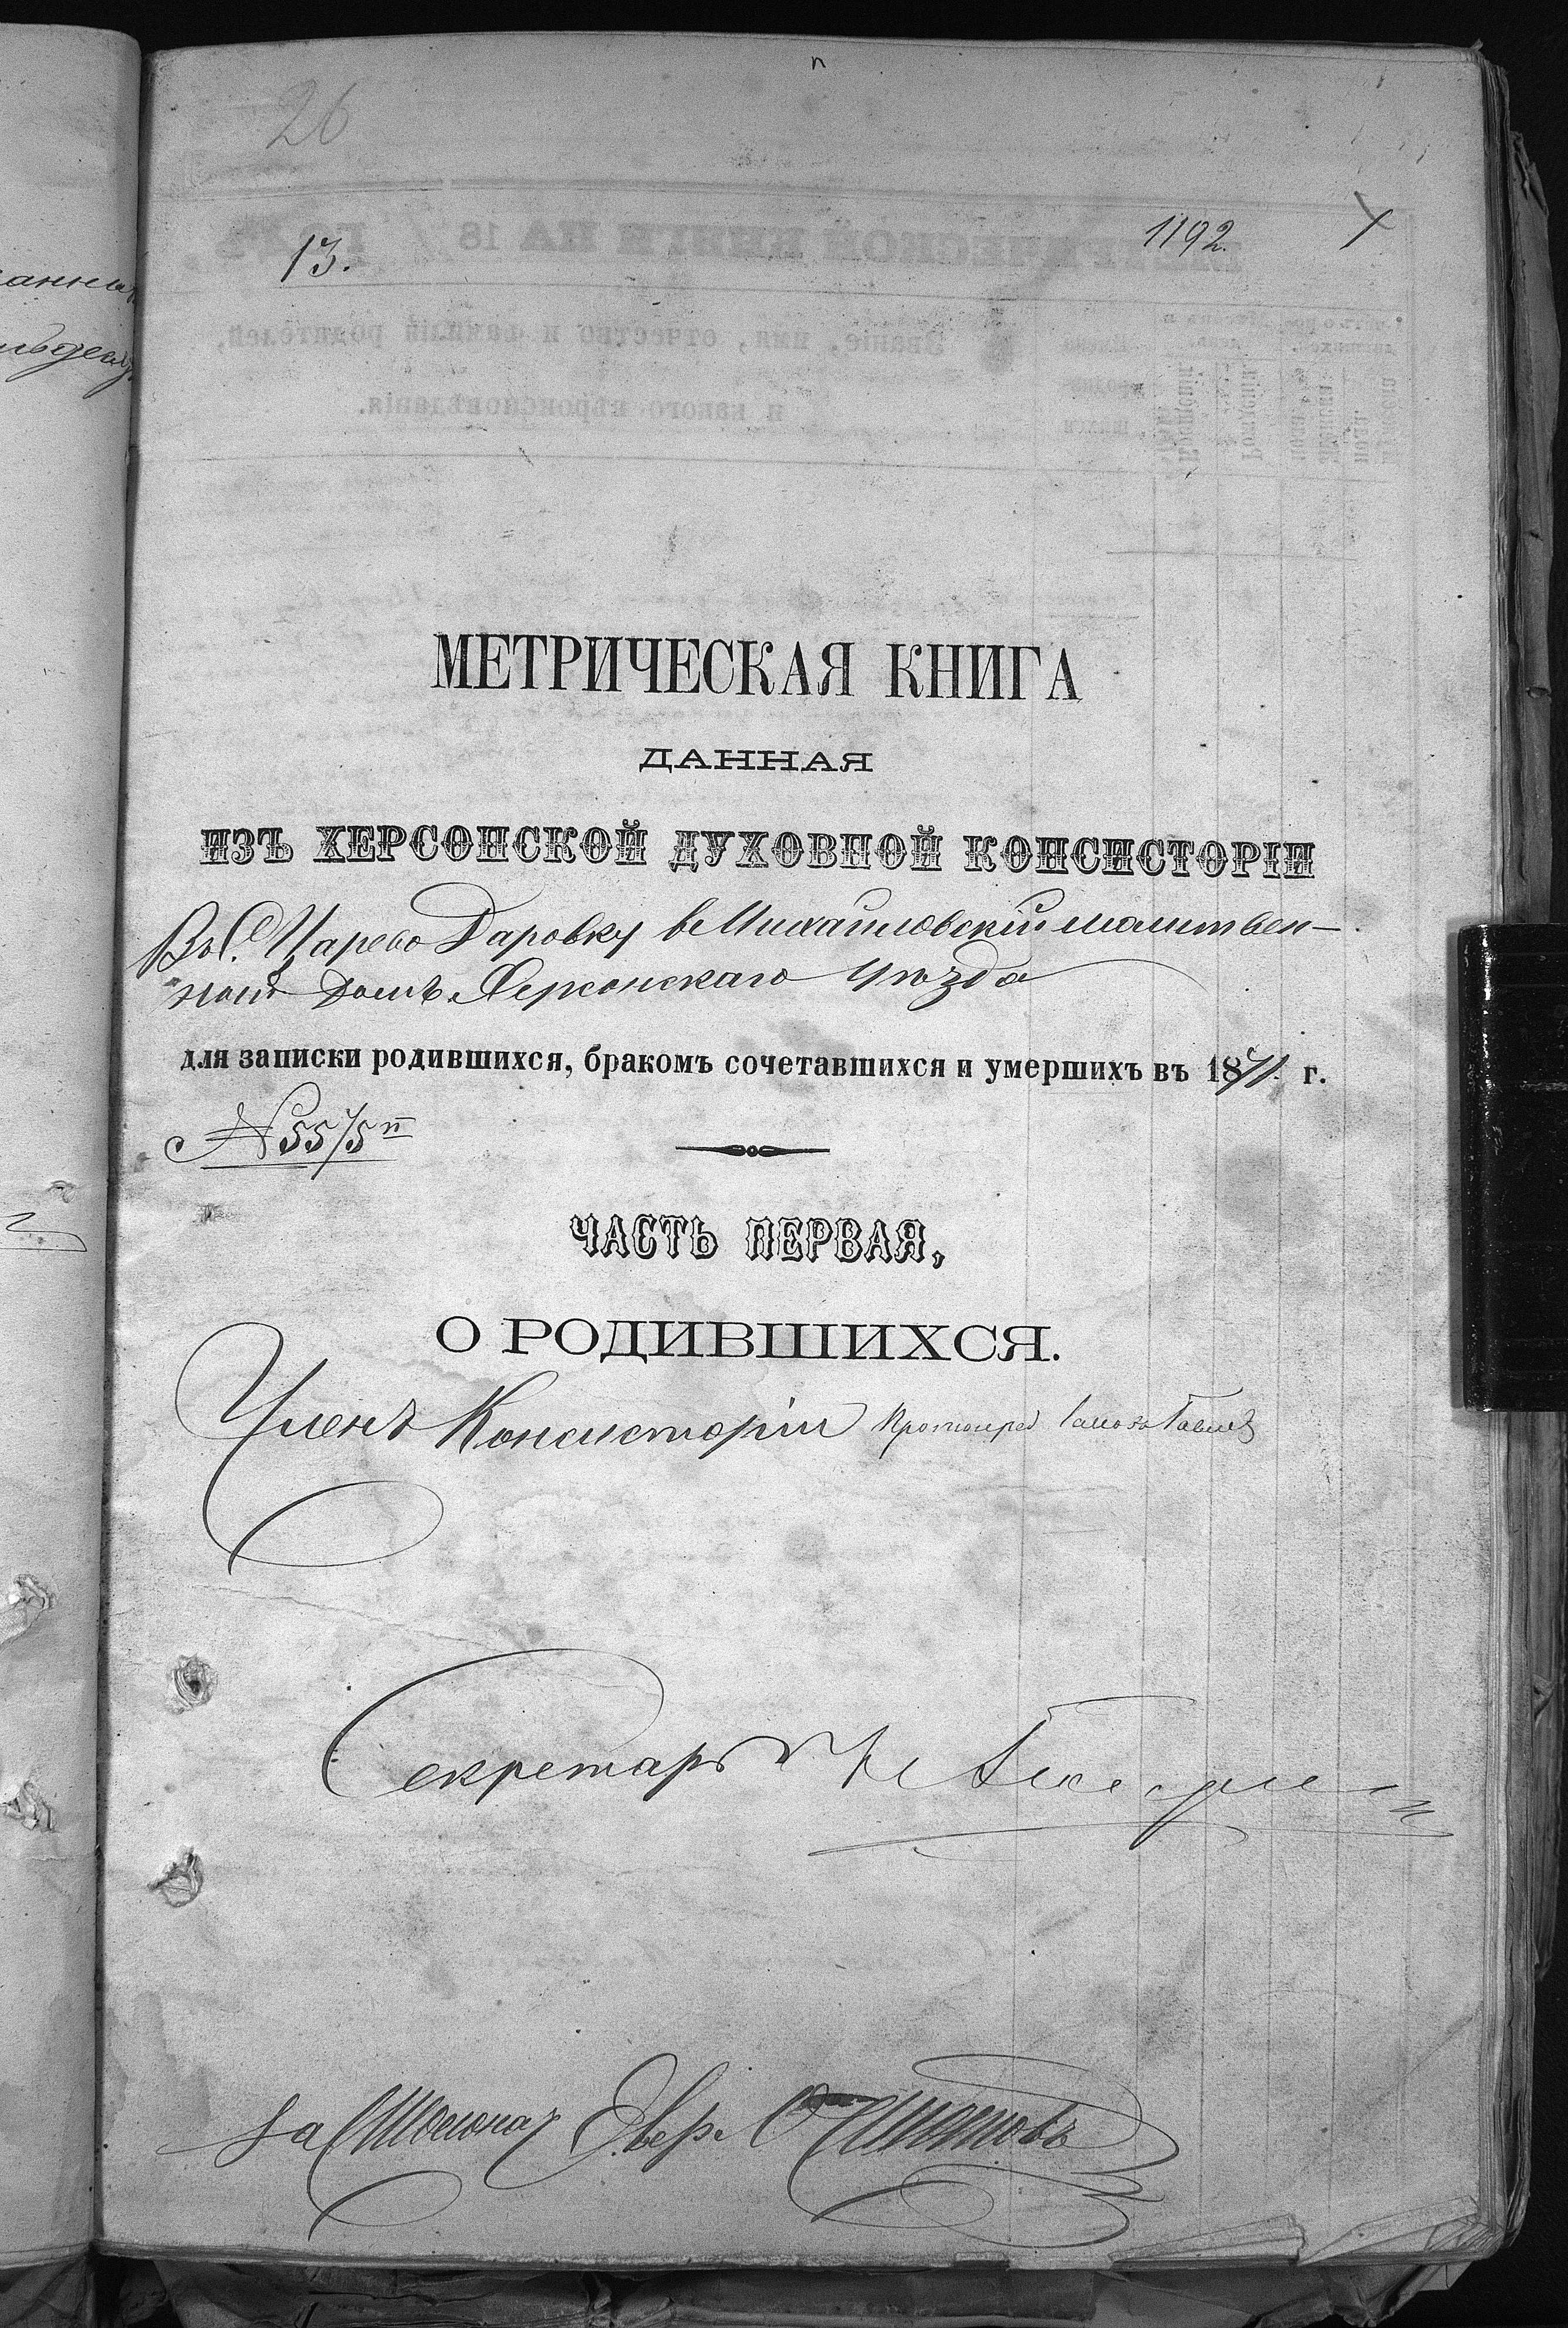 26
13.
1192.
МЕТРИЧЕСКАЯ КНИГА
ДАННАЯ
ИЗЪ ХЕРСОНСКОЙ ДУХОВНОЙ КОНСИСТОРІИ
Въ С. Царево Даровку въ Михайловскій молитвен-
ный Домъ, Херсонскаго уѣзда
для записки родившихся, бракомъ сочетавшихся и умершихъ въ 1871 г.
№ 5575
ЧАСТЬ ПЕРВАЯ,
О РОДИВШИХСЯ.
Членъ Консисторіи Протоіерей
Секретарь
За Столонач.